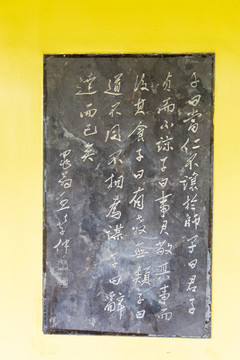 子曰當仁不讓於師子曰君子
貞而不諒子曰事君敬其事而
後其食子曰有教無類子曰
道不同不相為謀子曰辭
達而已矣